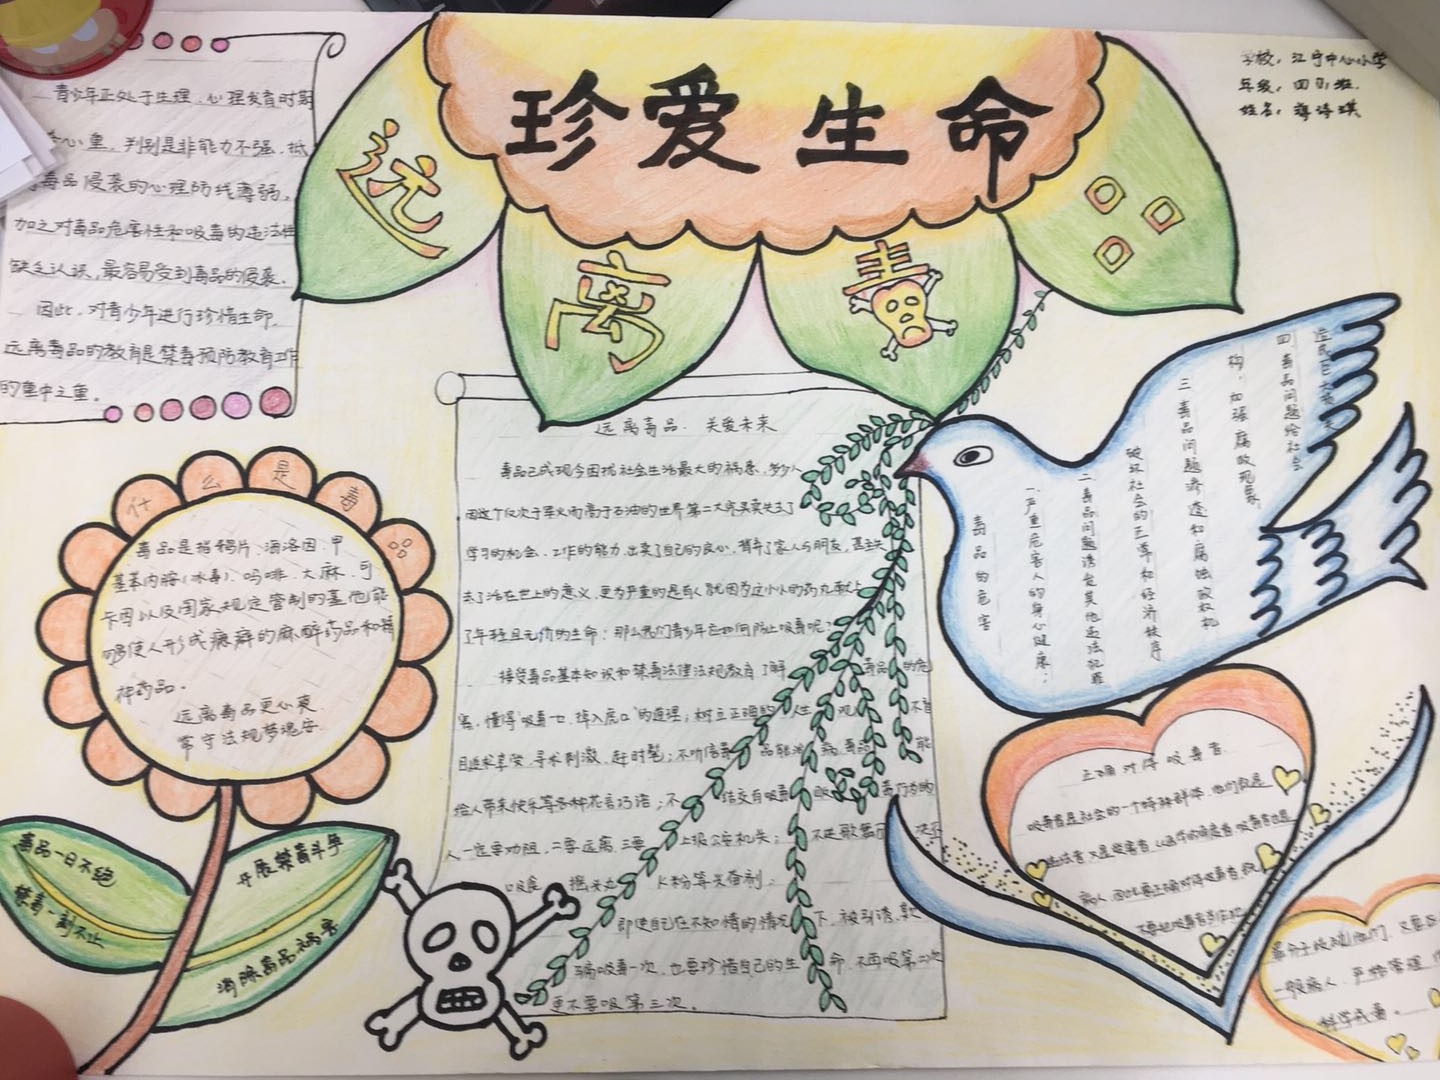 珍爱生命
远离毒品
学校：江宁中心小学
年级：四(1)班
姓名：诗琪
青少年正处于生理、心理发育时期
心重，判别是非能力不强，抵
毒品侵袭的心理防线薄弱，
加之对毒品危害性和吸毒的违法性
缺乏认识，最容易受到毒品的侵袭。
因此，对青少年进行珍惜生命，
远离毒品的教育是禁毒预防教育工作
的重中之重。
什么是毒品
毒品是指鸦片、海洛因、甲
基苯丙胺(冰毒)、吗啡、大麻、可
卡因以及国家规定管制的其他能
够使人形成瘾癖的麻醉药品和精
神药品。
远离毒品更心爽
常守法规梦魂安
毒品一日不绝
禁毒一刻不止
开展禁毒斗争
消除毒品祸害
远离毒品、关爱未来
毒品已成现今困扰社会生活最大的祸患，多少人
因这个仅次于军火而高于石油的世界第二大宗买卖失去了
学习的机会、工作的能力，出卖了自己的良心，背弃了家人与朋友，甚至失
去了活在世上的意义，更为严重的是有人就因为这小小的药丸献上
了年轻且无价的生命；那么我们青少年应如何防止吸毒呢？
接受毒品基本知识和禁毒法律法规教育了解毒品的危
害，懂得“吸毒一口，掉入虎口”的道理；树立正确的人生观，不盲
目追求享受，寻求刺激，赶时髦；不听信毒品能治病，毒品能
给人带来快乐等各种花言巧语；不结交有吸毒贩毒行为的
人一定要劝阻，二要远离，三要上报公安机关；不进歌舞厅，决不
吸食摇头丸K粉等兴奋剂；
即使自己在不知情的情况下，被引诱、欺
骗吸毒一次，也要珍惜自己的生命，不再吸第二次
更不要吸第三次。
毒品的危害
一、严重危害人的身心健康；
二、毒品问题诱发其他违法犯罪
破坏社会的正常和经济秩序
三、毒品问题渗透和腐蚀政权机
构，加强腐败现象
四、毒品问题给社会
造成巨大损失
正确对待吸毒者
吸毒者是社会的一个特殊群体，他们既是
违法者，又是受害者，从医学的角度看，吸毒者也是
病人，因此要正确对待吸毒者，既
不要把吸毒者当作犯
罪分子歧视他们，又要
一般病人，严格管理，
科学戒毒。